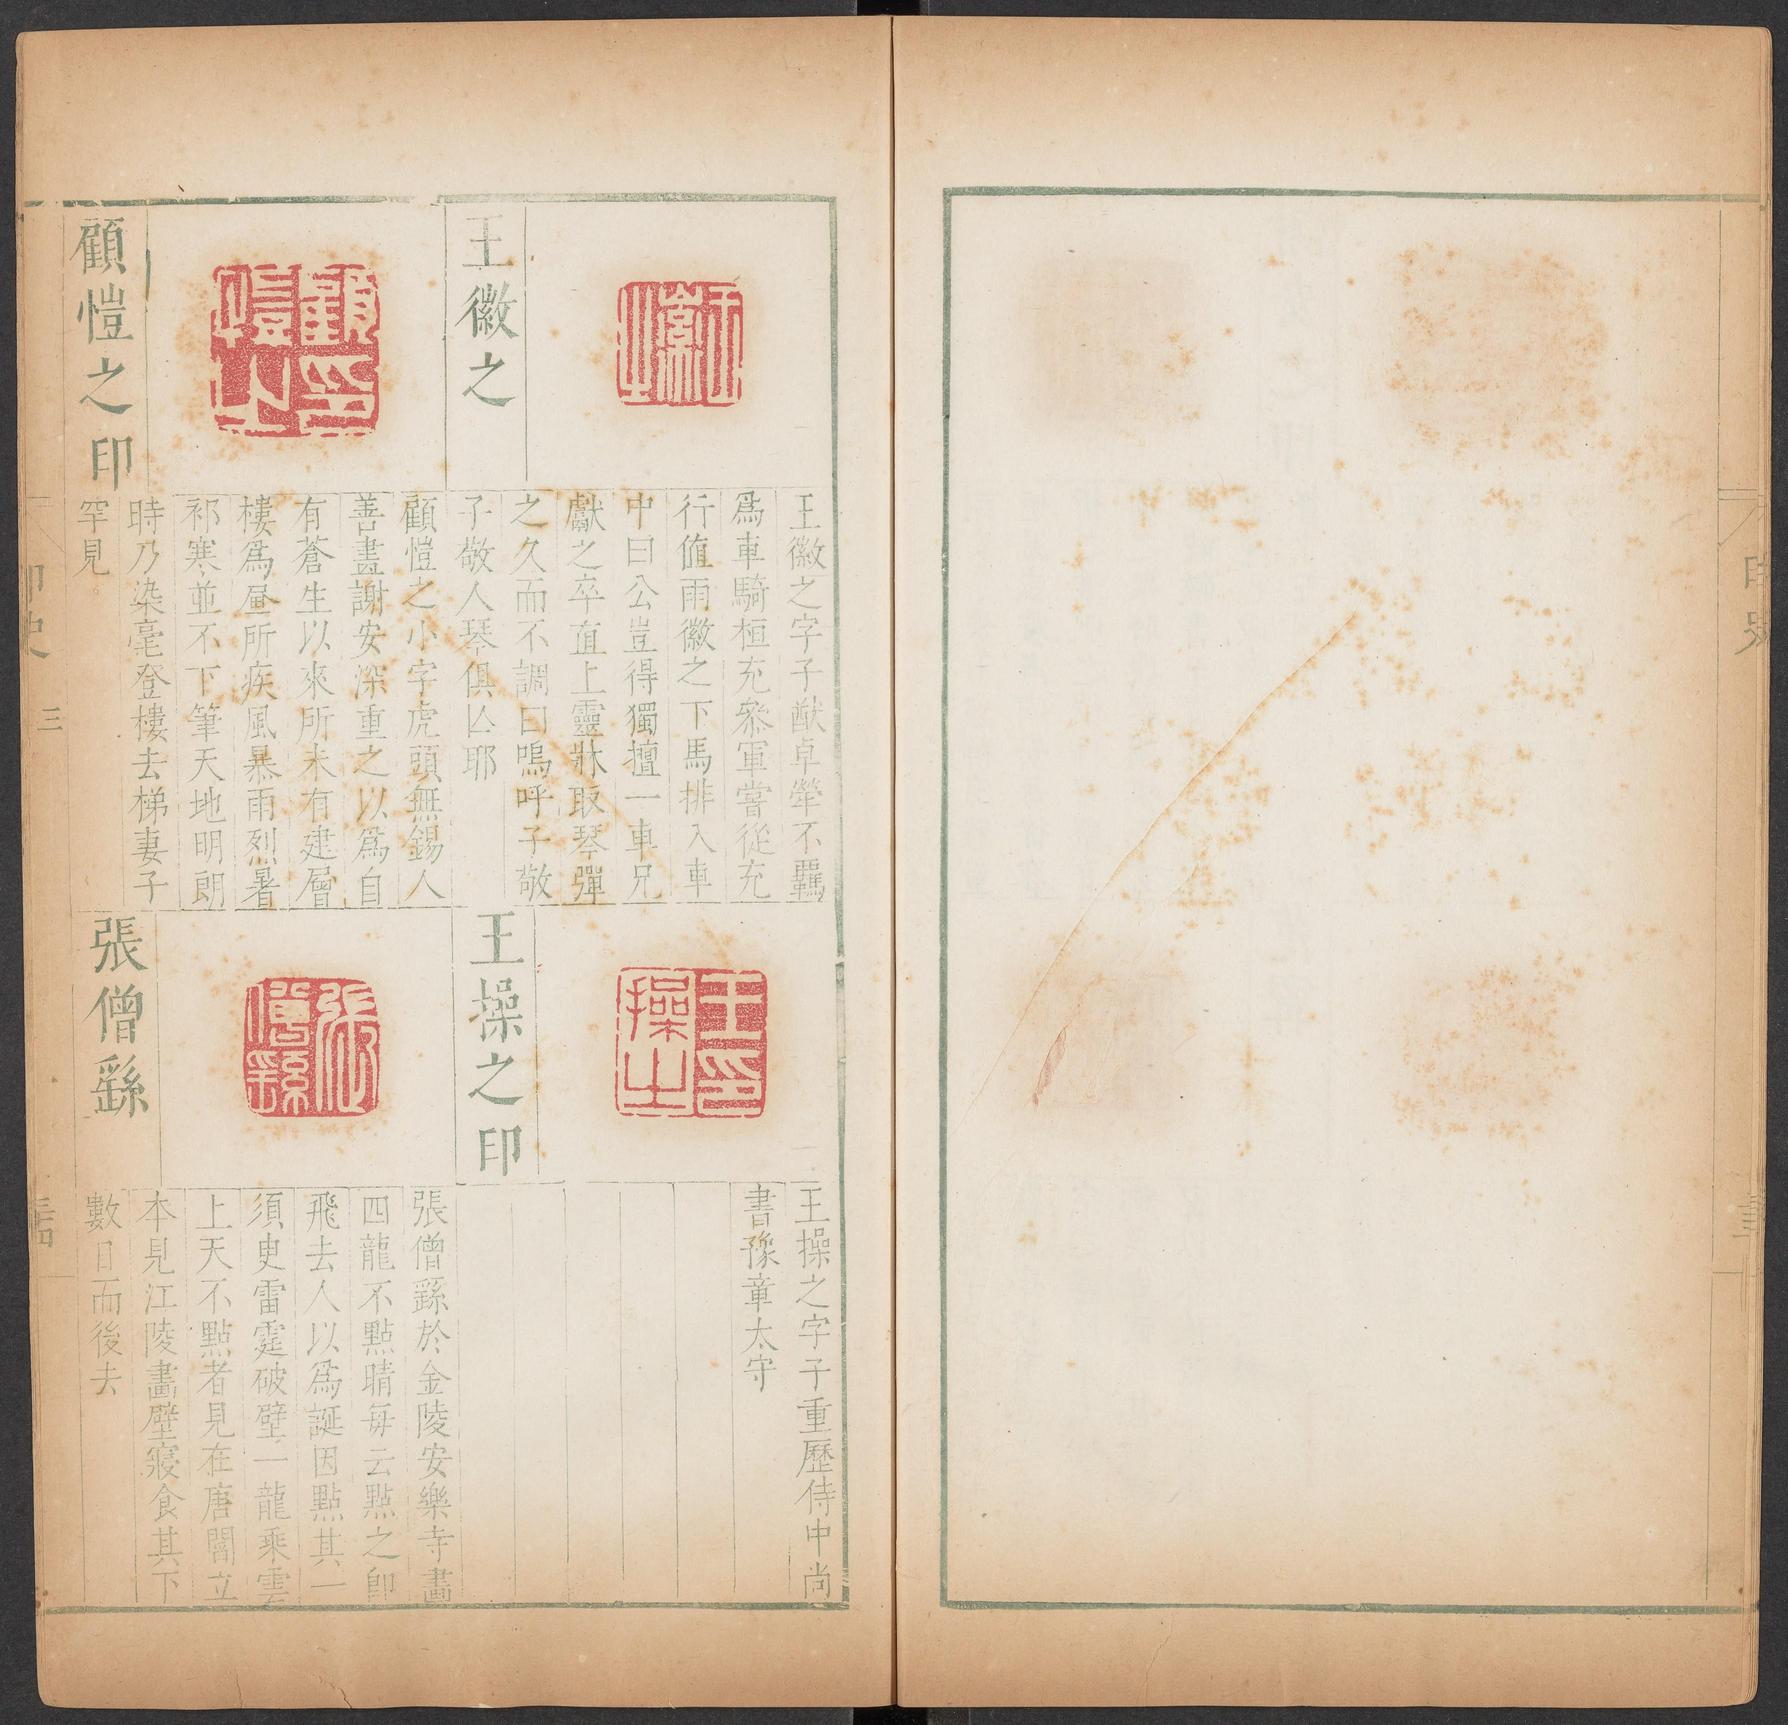 印史
王徽之
王徽之字子猷卓犖不羈
爲車騎桓充叅軍嘗從充
行值雨徽之下馬排入車
中曰公豈得獨擅一車兄
獻之卒直上靈牀取琴彈
之久而不調曰嗚呼子敬
子敬人琴俱亾耶
顧愷之印
顧愷之小字虎頭無錫人
善畫謝安深重之以爲自
有蒼生以來所未有建層
樓爲𢇲所疾風暴雨烈暑
祁寒並不下筆天地明朗
時乃染毫登樓去梯妻子
罕見
王操之印
王操之字子重歷侍中尚
書豫章太守
張僧繇
張僧繇於金陵安樂寺畫
四龍不點睛每云點之卽
飛去人以爲誕因點其一
須臾雷霆破壁一龍乘雲
上天不點者見在唐閻立
本見江陵畫壁寢食其下
數日而後去
印史
三